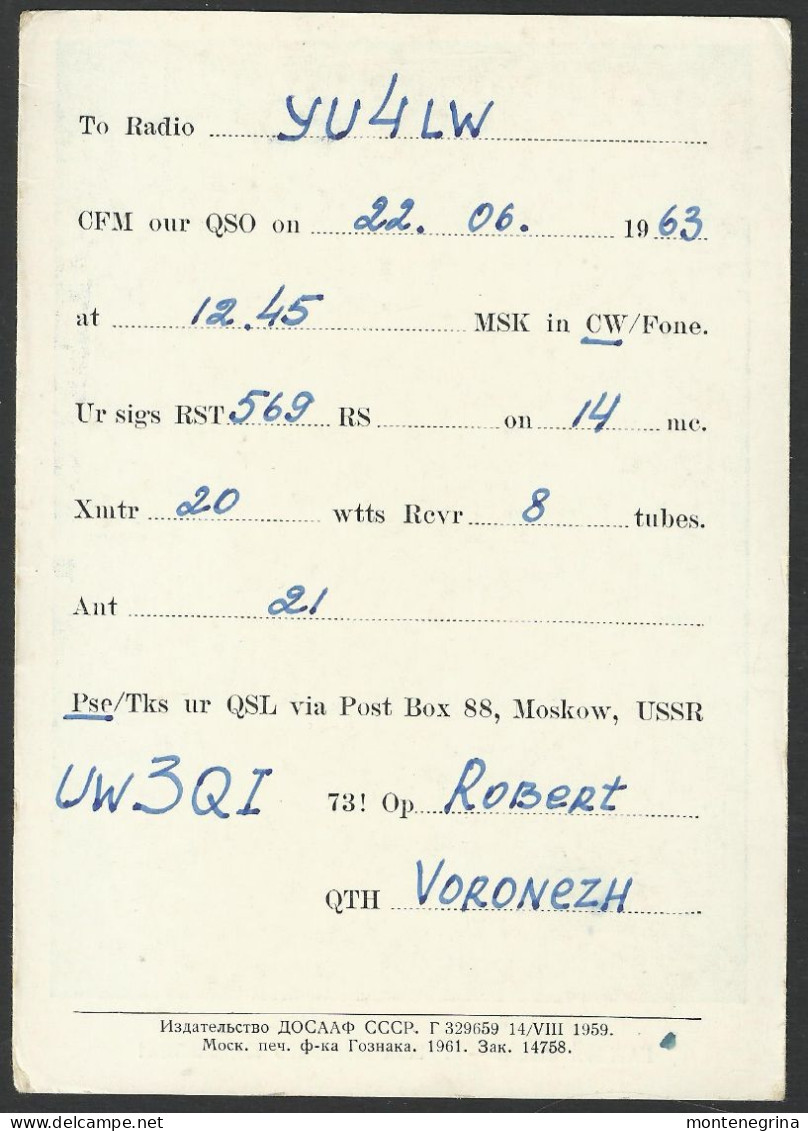 To Radio YU4LW
CFM our QSO on 22. 06. 1963
at 12.45 MSK in CW/Fone.
Ur sigs RST 569 RS on 14 mc.
Xmtr 20 wtts Rcvr 8 tubes.
Ant 21
Pse/Tks ur QSL via Post Box 88, Moskow, USSR
UW3QI 73! Op Robert
QTH VORONEZH
Издательство ДОСААФ СССР. Г 329659 14/VIII 1959.
Моск. печ. ф-ка Гознака. 1961. Зак. 14758.
www.delcampe.net
montenegrina